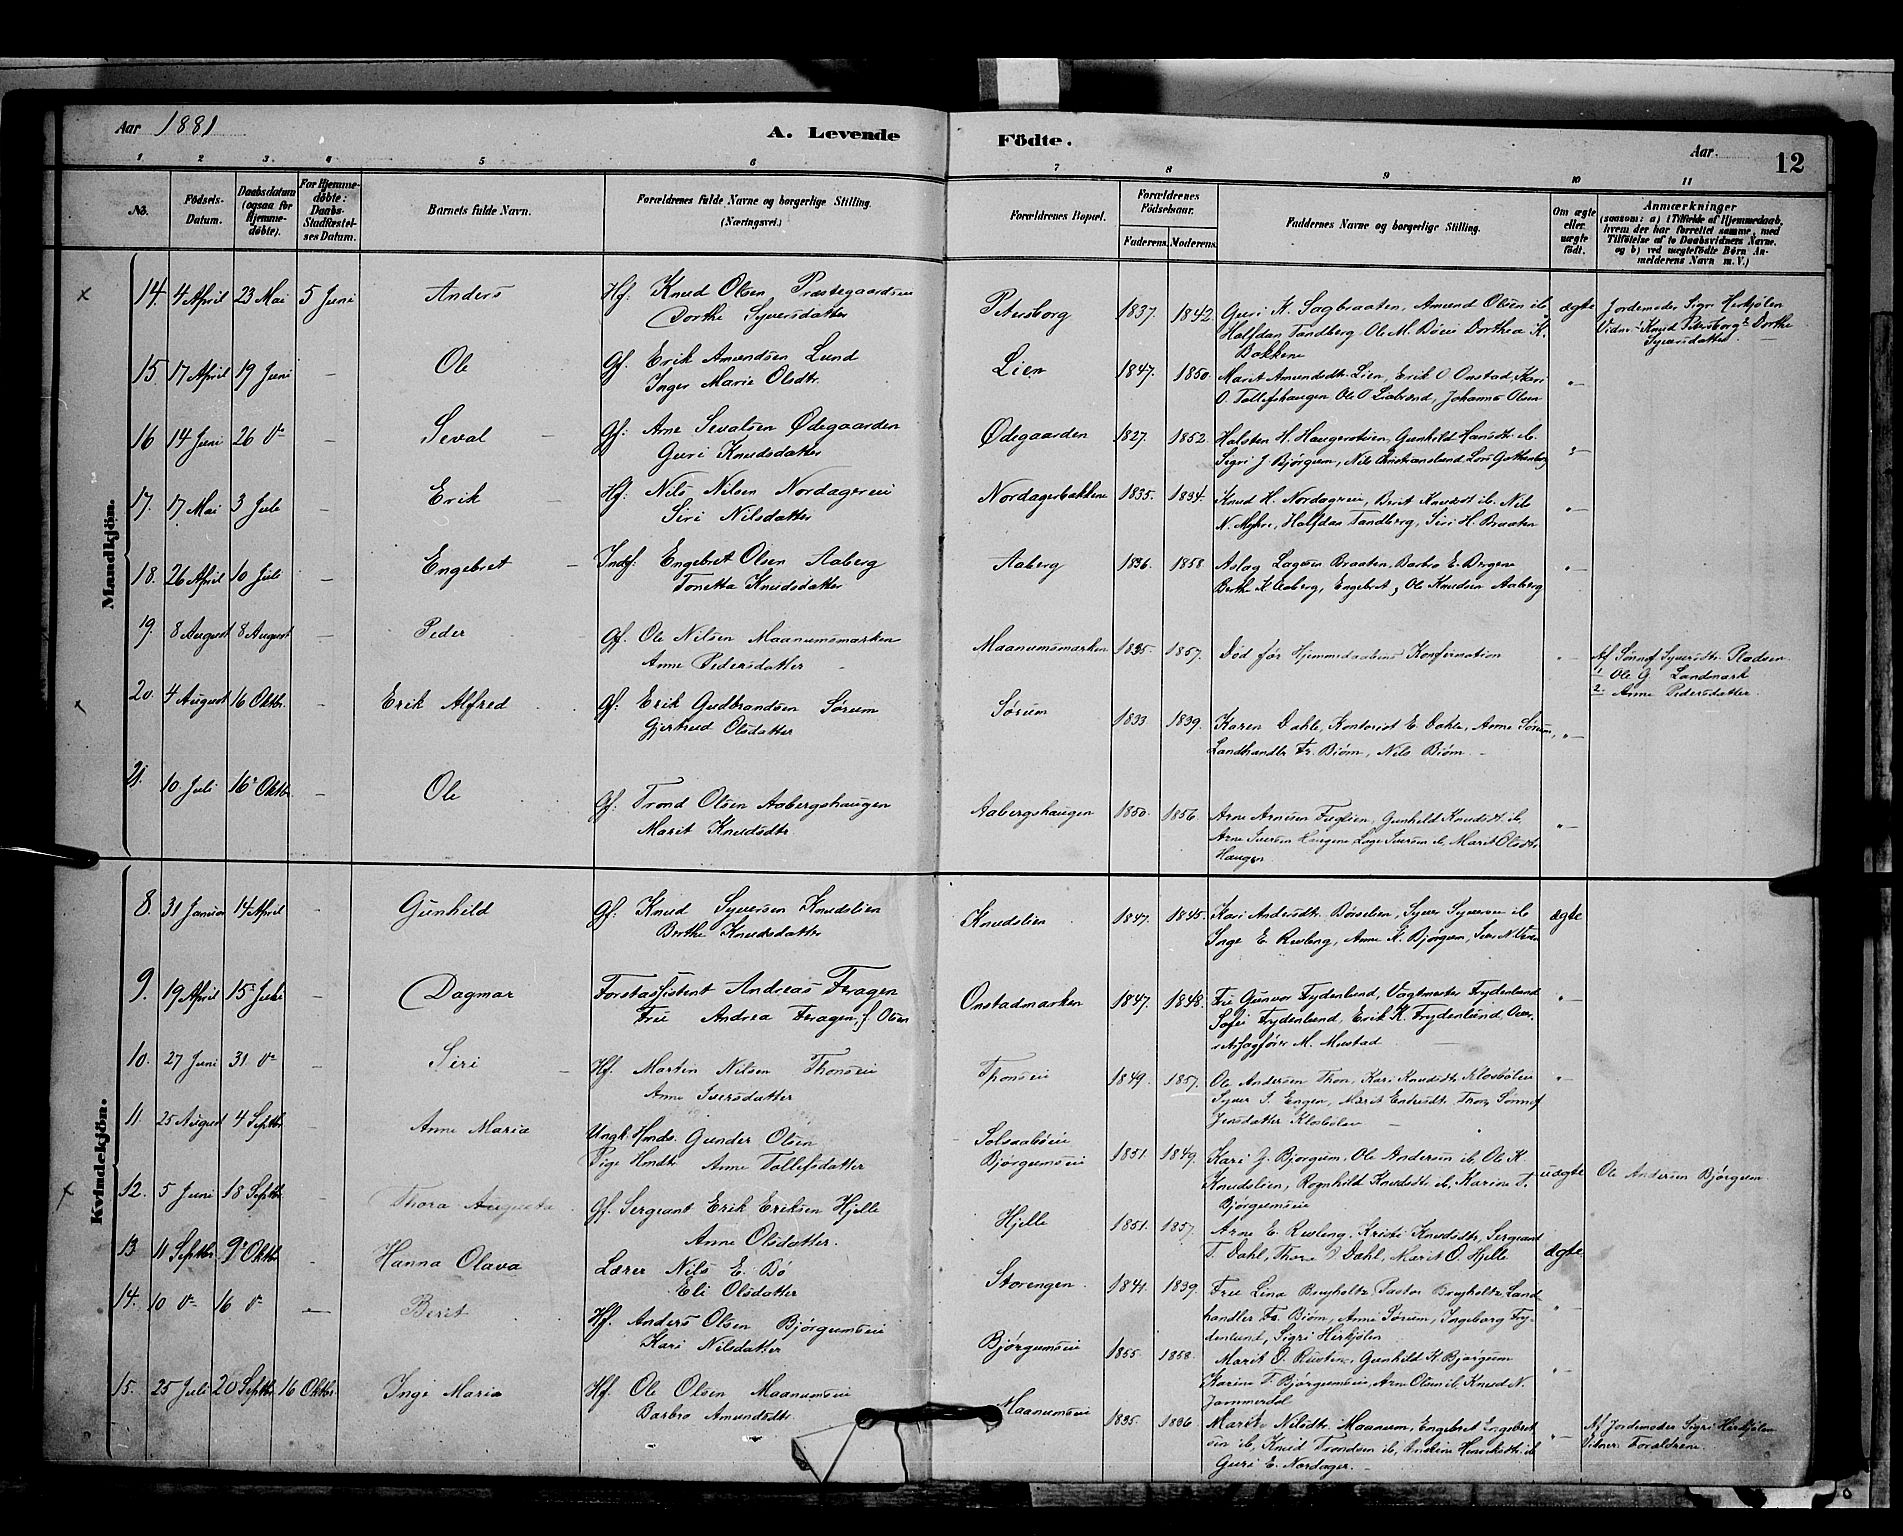 Aar 1881
A. Levende Födte.
Aar
12
1 2 3 4 5 6 7 8 9 10 11
No.
Födsels-Datum.
Daabsdatum (ogsaa for Hjemmedöbte).
For Hjemmedöbte: Daabs-Stadfæstelses Datum.
Barnets fulde Navn.
Forældrenes fulde Navne og borgerlige Stilling. (Næringsvei.)
Forældrenes Bopæl.
Forældrenes Födselsaar.
Faderens. Moderens.
Faddernes Navne og borgerlige Stilling.
Om ægte eller uægte födt.
Anmærkninger
(saasom: a) i Tilfælde af Hjemmedaab,
hvem der har forrettet samme, med
Tilföielse af to Daabsvidners Navne,
og b) ved uægtefödte Börn An-
melderens Navn m. V.)
Mandkjön.
14. 4 April 23 Mai 5 Juni Anders Hf. Knud Olsen Præstegaardseie
Dorthe Syversdatter
Petersborg 1837. 1842 Guri K. Sagbraaten, Amund Olsen ib.
Halfdan Tandberg Ole M. Böen Dorthea K.
Bakkene
ægte Jordemoder Sigri Herkjölen
Vidne Knud Petersborg Dorthe
Syversdatter
15. 17 April 19 Juni Ole Gf. Erik Amundsen Lund
Inger Marie Olsdtr.
Lien 1847. 1850 Marit Amundsdtr. Lien, Erik O Onstad, Kari
O. Tollefshaugen Ole O Liabrænd, Johanne Olsen
16 14 Juni 26 do Seval Gf: Arne Sevalsen Ødegaarden
Guri Knudsdatter
Ødegaarden 1827. 1852. Halsten H. Haugerstuen, Gunhild Hansdtr ib.
Sigri J Bjørgum, Nils Christianslund
17. 17 Mai 3 Juli Erik Hf: Nils Nilsen Nordagereie
Siri Nilsdatter
Nordagerbakkene 1835. 1834. Knud H. Nordagreie, Berit Knudsdt ib. Nils
N. Myhre, Halfdan Tandberg, Siri H. Braaten
18. 26 April 10 Juli Engebret Inds: Engebret Olsen Aaberg
Tonetta Knudsdatter
Aaberg 1836. 1858 Aslag Lagesen Braaten, Barbro E. Bergene
Berthe K Aaberg, Engebret, Ole Knudsen Aaberg
19. 8 August 8 August Peder Gf. Ole Nilsen Maanumsmarken
Anne Pedersdatter
Maanumsmarken 1835. 1857. Död för Hjemmedaabens Konfirmation
Af Sönnøf Syversdtr. Pladsen
1 Ole G Landmark
2 Anne Pedersdatter
20. 4 August 16 Oktbr. Erik Alfred Gf: Erik Gudbrandsen Sørum
Gjertrud Olsdatter
Sørum 1833 1839. Karen Dahle, Kontorist E. Dahle, Anne Sørum,
Landhandler Fr. Biørn, Nils Biørn
21. 10 Juli 16 Oktbr Ole Gf: Trond Olsen Aabergshaugen
Marit Knudsdtr
Aabergshaugen 1850. 1856. Arne Arnesen Fuglien, Gunhild Knudsdt ib.
Arne Iversen Haugene Lage Iversen ib, Marit Olsdtr.
Haugen
Kvindekjön.
8. 31 Januar 14 April Gunhild Gf: Knud Syversen Knudslien
Berthe Knudsdatter
Knudslien 1847. 1845. Kari Andersdt. Börslien, Syver Syversen ib
Inge E. Rusleng, Anne K. Bjørgum, Siri N.
ægte
9. 19 April 15 Juli Dagmar Forstassistent Andreas Feragen
Frue Andrea Feragen, f. Olsen
Onstadmarken 1847. 1848. Frue Gunvor Frydenlund, Vagtmester Frydenlund
Sofie Frydenlund, Erik K. Frydenlund, Over-
retssagförer M. Mustad
10. 27 Juni 31 do Siri Hf. Martin Nilsen Thonseie
Anne Iversdatter
Thonseie 1849. 1857. Ole Andersen Thon, Kari Knudsdt. Klosbölen
Syver I. Engen, Marit Endresdt. Thon, Sönnøf
Jensdatter Klosbölen
11. 25 August 4 Septbr. Anne Maria Ungk. Hmds. Gunder Olsen
Pige Hmdtr Anne Tollefsdatter
Solsaaböeie
Bjørgumseie
1851. 1849. Kari G. Bjørgum, Ole Andersen ib. Ole K.
Knudslien, Ragnhild Knudsdtr ib, Karine T.
Bjørgumseie
uægte Ole Andersen Bjørgum
12. 5 Juni 18 Septbr Thora Augusta Gf. Sergeant Erik Eriksen Hjelle
Anne Olsdatter.
Hjelle 1851. 1857. Arne E. Rusleng, Kristi Knudsdt, Sergeant
T. Dahl, Thora Dahl, Marit O. Hjelle
ægte
13. 11 Septbr. 9 Oktbr. Hanna Olava Lærer Nils E. Bö
Eli Olsdatter
Storengen 1841. 1839. Frue Lina Bruyholtz, Pastor Bruyholtz, Land-
handler Fr. Biørn, Anne Sørum, Ingeborg Fry-
denlund, Sigri Hirkjölen
14. 10 do 16 do Berit Hf. Anders Olsen Bjørgumseie
Kari Nilsdatter
Bjørgumseie 1855. 1858. Marit O. Rusten, Gunhild K Bjørgum
Karine T. Bjørgumseie, Arne Olsen ib. Knud N.
Jammerdal
15. 25 Juli 20 Septbr. 16 Oktbr. Ingi Maria Hf. Ole Olsen Maanumseie
Barbro Amundsdt.
Maanumseie 1835. 1836 Marthe Nilsdtr. Maanum, Engebret Engebret-
sen ib, Knud Trondsen ib, Andrine Henriksdtr. ib
Guri E. Nordager.
Af Jordemoder Sigri Hirkjölen
Vidner: Forældrene